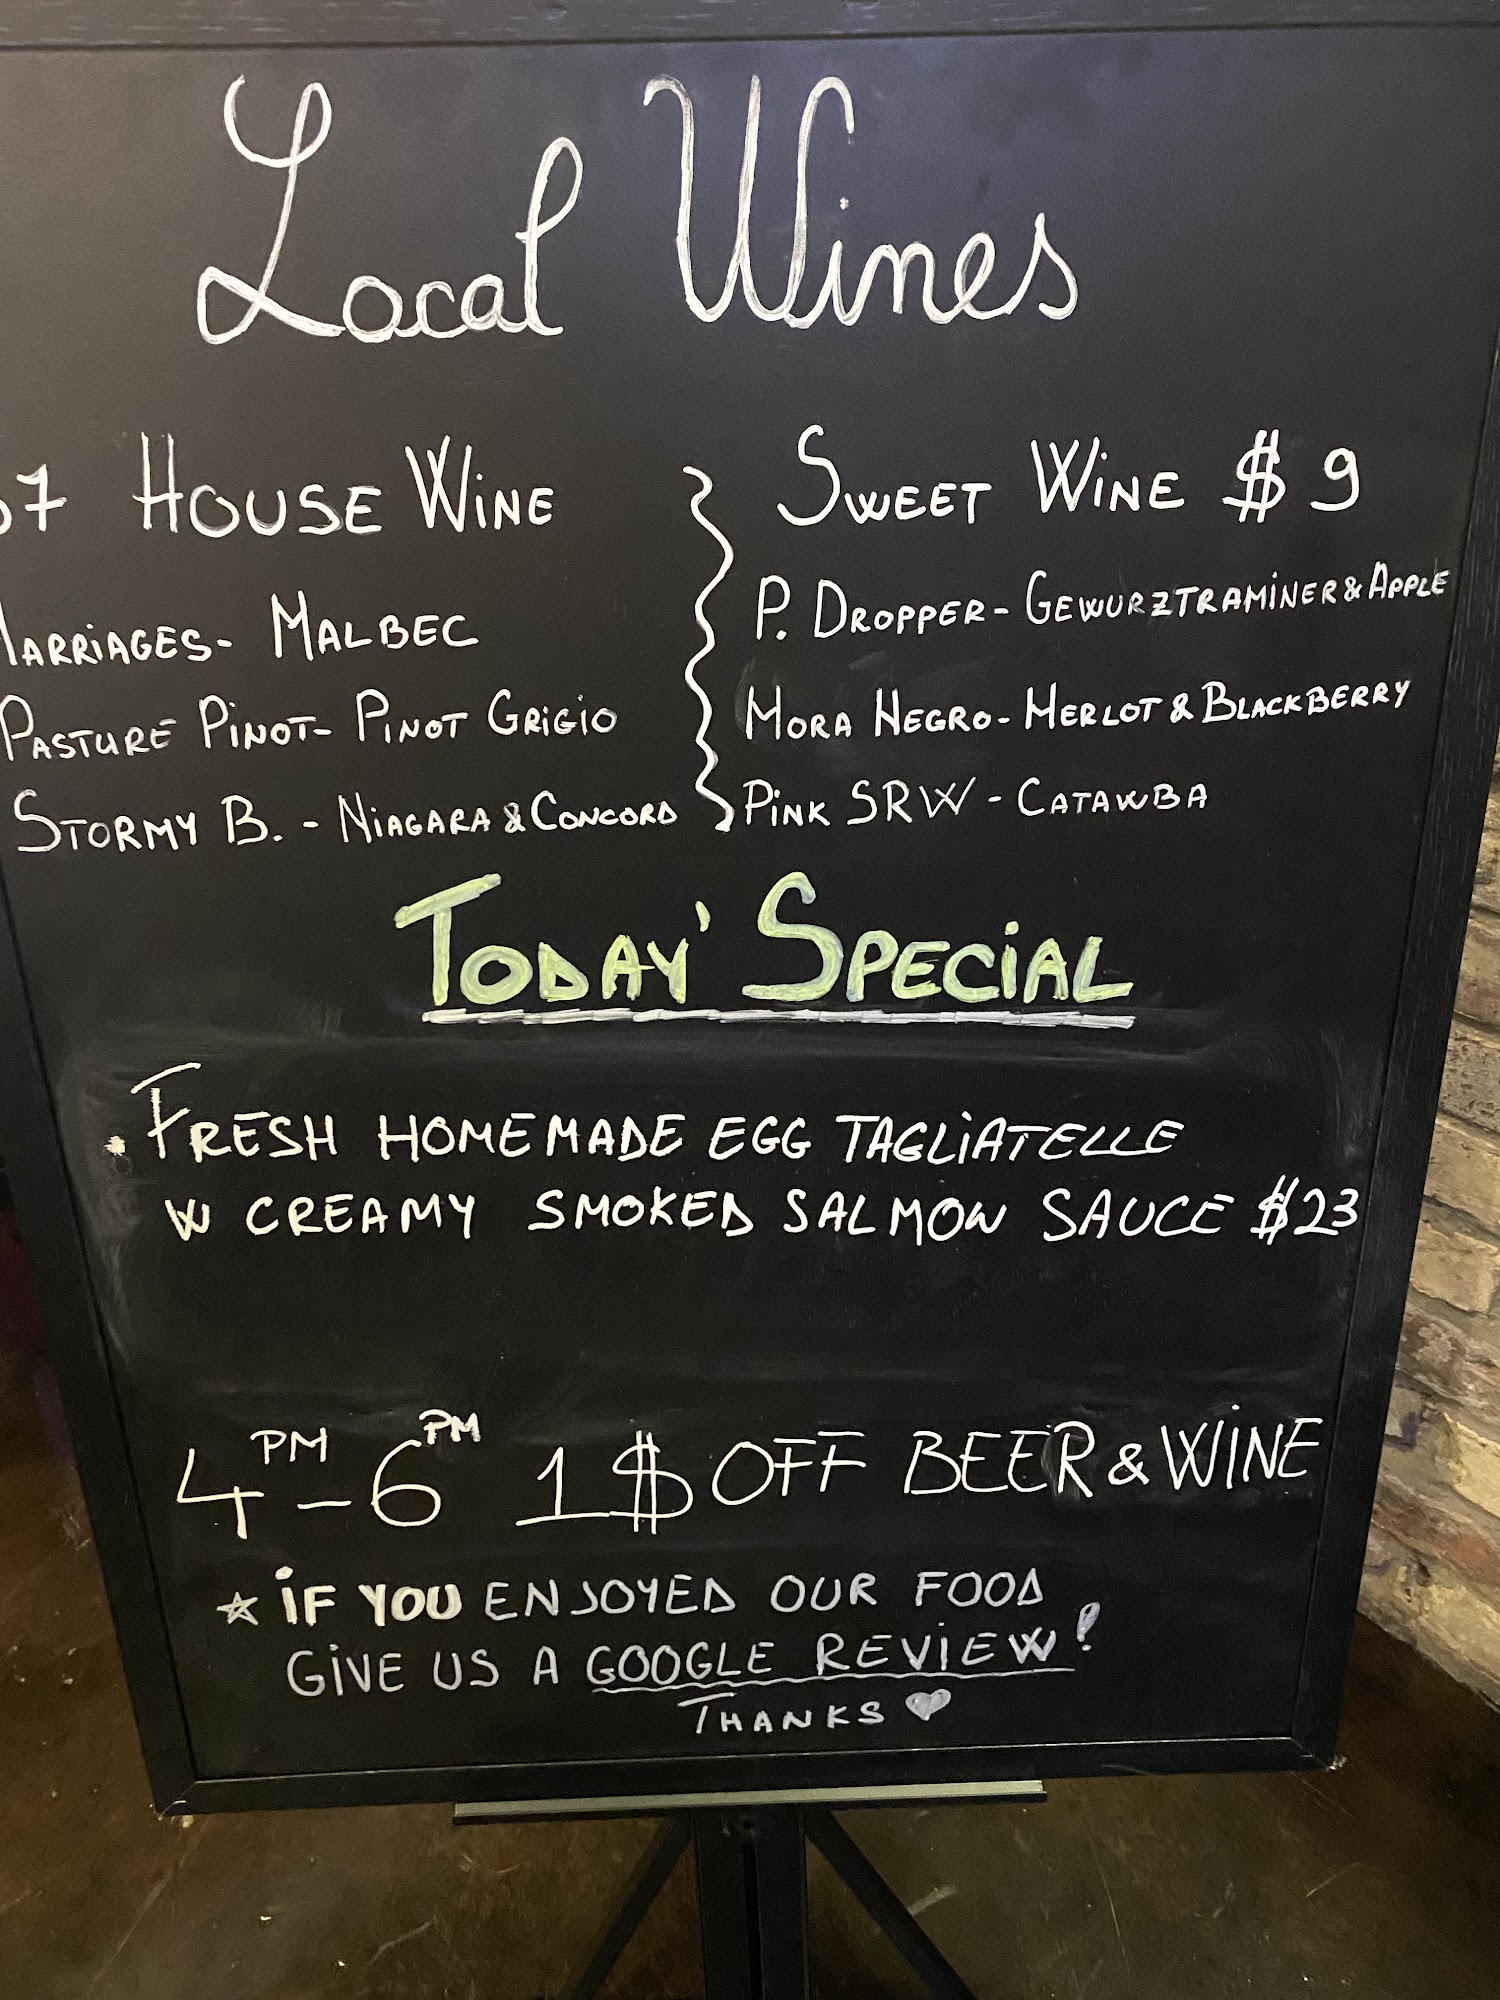 Local Wines
7 HOUSE WINE
MARRIAGES- MALBEC
PASTURE PINOT- PINOT GRIGIO
STORMY B. - NIAGARA & CONCORD
SWEET WINE $ 9
P. DROPPER- GEWURZTRAMINER & APPLE
MORA NEGRO- MERLOT & BLACKBERRY
PINK SRW - CATAWBA
TODAY' SPECIAL
. FRESH HOMEMADE EGG TAGLIATELLE
W CREAMY SMOKED SALMON SAUCE $23
4PM - 6PM 1$ OFF BEER & WINE
☆ IF YOU ENJOYED OUR FOOD
GIVE US A GOOGLE REVIEW!
THANKS ♥